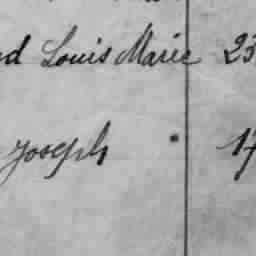 d Louis Marie 23
Joseph 17